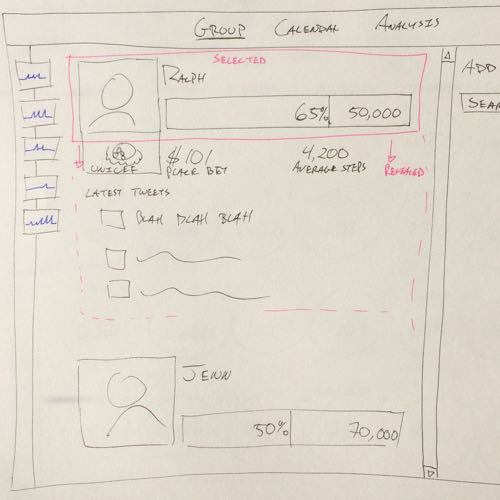 GROUP CALENDAR ANALYSIS
SELECTED
RALPH
ADD
65% 50,000
SEAR
UNICEF $101 4,200
PLACE BET AVERAGE STEPS REVEALED
LATEST TWEETS
BLAH BLAH BLAH
JENN
50% 70,000